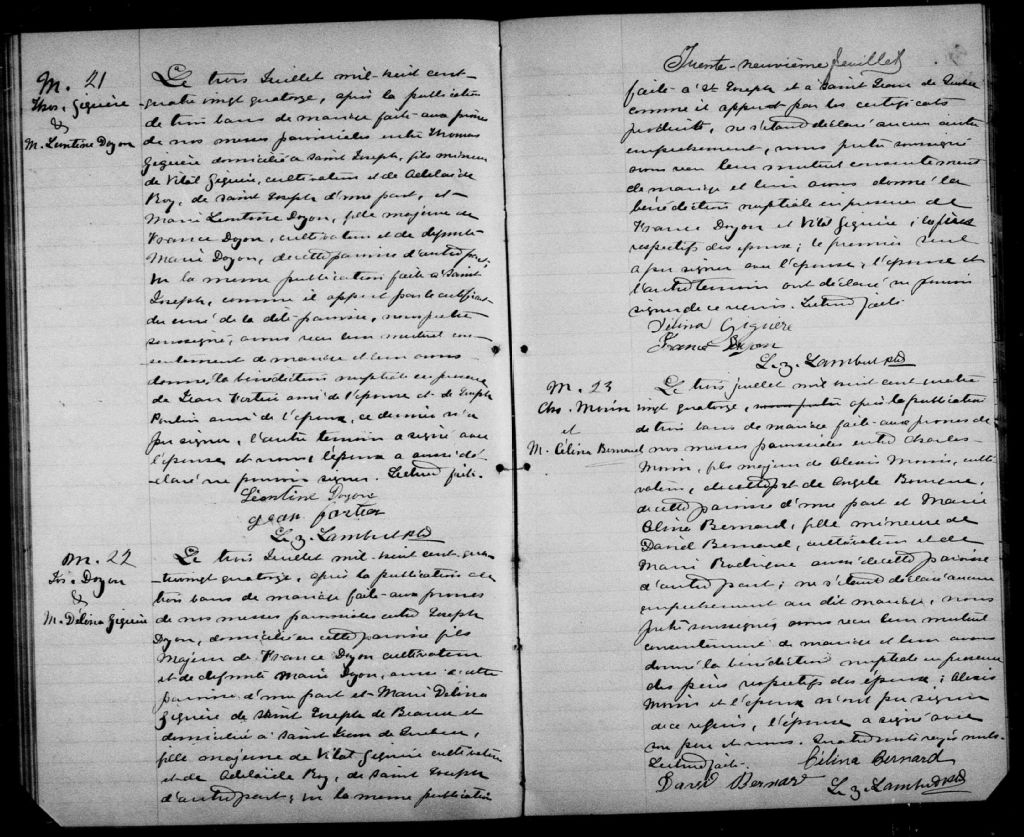 M. 21
Thos. Giguère
&
M. Leontine Doyon
Le trois Juillet mil-huit cent-
quatre vingt quatorze, après la publication
de trois bans de mariage faite aux prônes
de nos messes paroissiales entre Thomas
Giguère domicilié à Saint Joseph, fils mineur
de Vital Giguère, cultivateur et de Adélaïde
Roy, de Saint Joseph d'une part, et
Marie Leontine Doyon, fille majeure de
France Doyon, cultivateur et de défunte
Marie Doyon, de cette paroisse d'autre part;
Vu la même publication faite à Saint
Joseph, comme il appert par le certificat
du curé de la dite paroisse, nous prêtre
soussigné, avons reçu leur mutuel con-
sentement de mariage et leur avons
donné la bénédiction nuptiale en présence
de Jean Fortier ami de l'épouse et de Joseph
Poulin ami de l'époux, ce dernier n'a
pu signer, l'autre témoin a signé avec
l'épouse et nous, l'époux a aussi dé-
claré ne pouvoir signer. Lecture faite.
Léontine Doyon
Jean Fortier
L. Z. Lambert ptre
M. 22
Js. Doyon
&
M. Délina Giguère
Le trois Juillet mil-huit cent-qua-
trevingt quatorze, après la publication de
trois bans de mariage faite aux prônes
de nos messes paroissiales entre Joseph
Doyon, domicilié en cette paroisse fils
Majeur de France Doyon cultivateur
et de défunte Marie Doyon, aussi d'cette
paroisse, d'une part et Marie Delina
Giguère de Saint Joseph de Beauce et
domiciliée à Saint Jean de Québec,
fille majeure de Vital Giguère cultivateur
et de Adelaïde Roy, de Saint Joseph
d'autre part; vu la même publication
Trente-neuvième feuillet
faite à St Joseph et à Saint Jean de Québec
comme il appert par les certificats
produits, ne s'étant déclaré aucun autre
empêchement, nous prêtre soussigné
avons reçu leur mutuel consentement
de mariage et leur avons donné la
bénédiction nuptiale en présence de
France Doyon et Vital Giguère,
respectifs des époux; le premier seul
a pu signer avec l'épouse, l'époux et
l'autre témoin ont déclaré ne pouvoir
signer de ce requis. Lecture faite.
Délina Giguère
France Doyon
L. Z. Lambert ptre
M. 23
Chs. Morin
et
M. Célina Bernard
Le trois juillet mil huit cent quatre
vingt quatorze, après la publication
de trois bans de mariage faite aux prônes de
nos messes paroissiales entre Charles
Morin, fils majeur de Alexis Morin, culti-
vateur, et de Angele
de cette paroisse d'une part et Marie
Célina Bernard, fille mineure de
David Bernard, cultivateur et de
Marie Rodrigue aussi de cette paroisse
d'autre part; ne s'étant déclaré aucun
empêchement au dit mariage, nous
prêtre soussigné avons reçu leur mutuel
consentement de mariage et leur avons
donné la bénédiction nuptiale en présence
des pères respectifs des époux; Alexis
Morin et l'époux n'ont pu signer
de ce requis, l'épouse a signé avec
son père et nous. Quatre mots rayés nuls.
Lecture faite.
Célina Bernard
David Bernard
L. Z. Lambert ptre